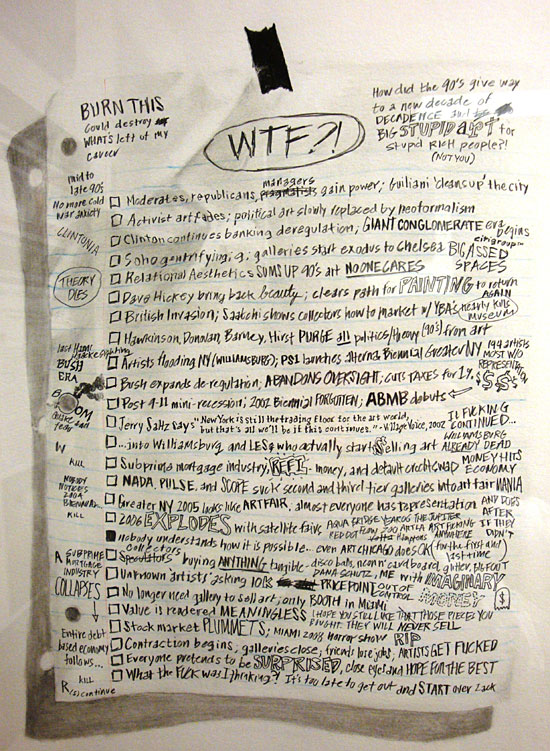 BURN THIS
could destroy
WHAT'S left of my
career
WTF?!
How did the 90's give way
to a new decade of
DECADENCE and
BIG STUPID ART for
stupid RICH people?!
(NOT YOU)
mid to
late 90's
No more cold
war anxiety
CLINTONIA
THEORY
DIES
BUSH
ERA
BOOM
KILL
NOBODY
NOTICES
2004
BIENNIAL
KILL
A SUBPRIME
MORTGAGE
INDUSTRY
COLLAPSES
Entire debt
based economy
follows...
KILL
managers
Moderates, republicans, pragmatists gain power; Guiliani 'cleans up' the city
Activist art fades; political art slowly replaced by neoformalism
Clinton continues banking deregulation; GIANT CONGLOMERATE era begins
Soho gentrifying; galleries start exodus to Chelsea BIG ASSED
SPACES
Relational Aesthetics SUMS UP 90's art NO ONE CARES
Dave Hickey bring back beauty; clears path for PAINTING to return
AGAIN
British Invasion; Saatchi shows collectors how to market w/ YBA's nearly kills
museum
Hawkinson, Donovan, Barney, Hirst PURGE all politics/theory (90's) from art
Artists flooding NY (WILLIAMSBURG); PS1 launches alterna Biennial Greater NY
MOST W/O
REPRESENTATION
Bush expands de-regulation; ABANDONS OVERSIGHT; cuts TAXES for 1%
$ $
Post 9-11 mini-recession; 2002 Biennial FORGOTTEN; ABMB debuts
Jerry Saltz says "New York is still the trading floor for the art world,
but that's all we'll be if this continues." -Village Voice, 2002
IT FUCKING
CONTINUED...
...into Williamsburg and LES & who actually start $elling art
WILLIAMSBURG
ALREADY DEAD
Subprime mortgage industry, REFI-money, and default credit swap
MONEY HITS
ECONOMY
NADA, PULSE, and SCOPE suck second and third tier galleries into art fair MANIA
Greater NY 2005 looks like ART FAIR, almost everyone has representation
AND DOES
AFTER
IF THEY
DIDN'T
2006 EXPLODES with satellite fairs
nobody understands how it is possible... even ART CHICAGO does OK (for the first and
last time
Collectors
Speculators buying ANYTHING tangible- disco balls, neon'n' card board, glitter, BIGFOOT
DANA SCHUTZ, ME with IMAGINARY
MONEY
$
Unknown artists' asking 10K PRICE POINT OUT OF
CONTROL
No longer need gallery to sell art; only BOOTH in Miami
Value is rendered MEANINGLESS I HOPE YOU STILL LIKE THAT THOSE PIECES YOU
BOUGHT. THEY WILL NEVER SELL
Stock market PLUMMETS; MIAMI 2008 horror show RIP
Contraction begins, galleries close, friends lose jobs, ARTISTS GET FUCKED
Everyone pretends to be SURPRISED, close eyes and HOPE FOR THE BEST
What the FUCK was I thinking? It's too late to get out and START over